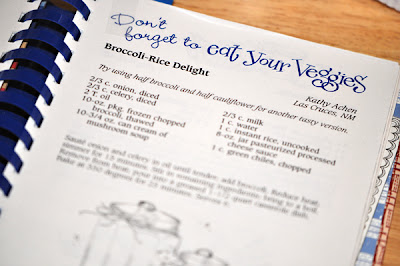 Don't
forget to eat your Veggies
Broccoli-Rice Delight
Kathy Achen
Las Cruces, NM
Try using half broccoli and half cauliflower for another tasty version.
2/3 c. onion, diced
2/3 c. celery, diced
2 T. oil
10-oz. pkg. frozen chopped
broccoli, thawed
10-3/4 oz. can cream of
mushroom soup
2/3 c. milk
1 c. water
1 c. instant rice, uncooked
8-oz. jar pasteurized processed
cheese sauce
1 c. green chiles, chopped
Sauté onion and celery in oil until tender, add broccoli. Reduce heat,
simmer for 15 minutes. Stir in remaining ingredients; bring to a boil.
Remove from heat, pour into a greased 1-1/2 quart casserole dish.
Bake at 350 degrees for 25 minutes. Serves